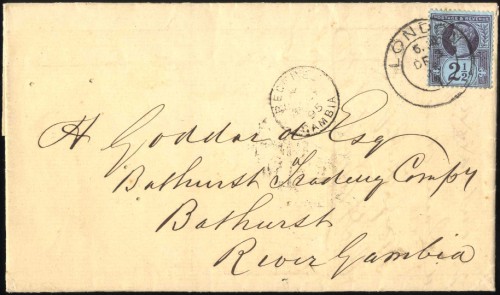 LONDON
POSTAGE & REVENUE
2½
GAMBIA
H Goddard Esq
Bathurst Trading Compy
Bathurst
River Gambia